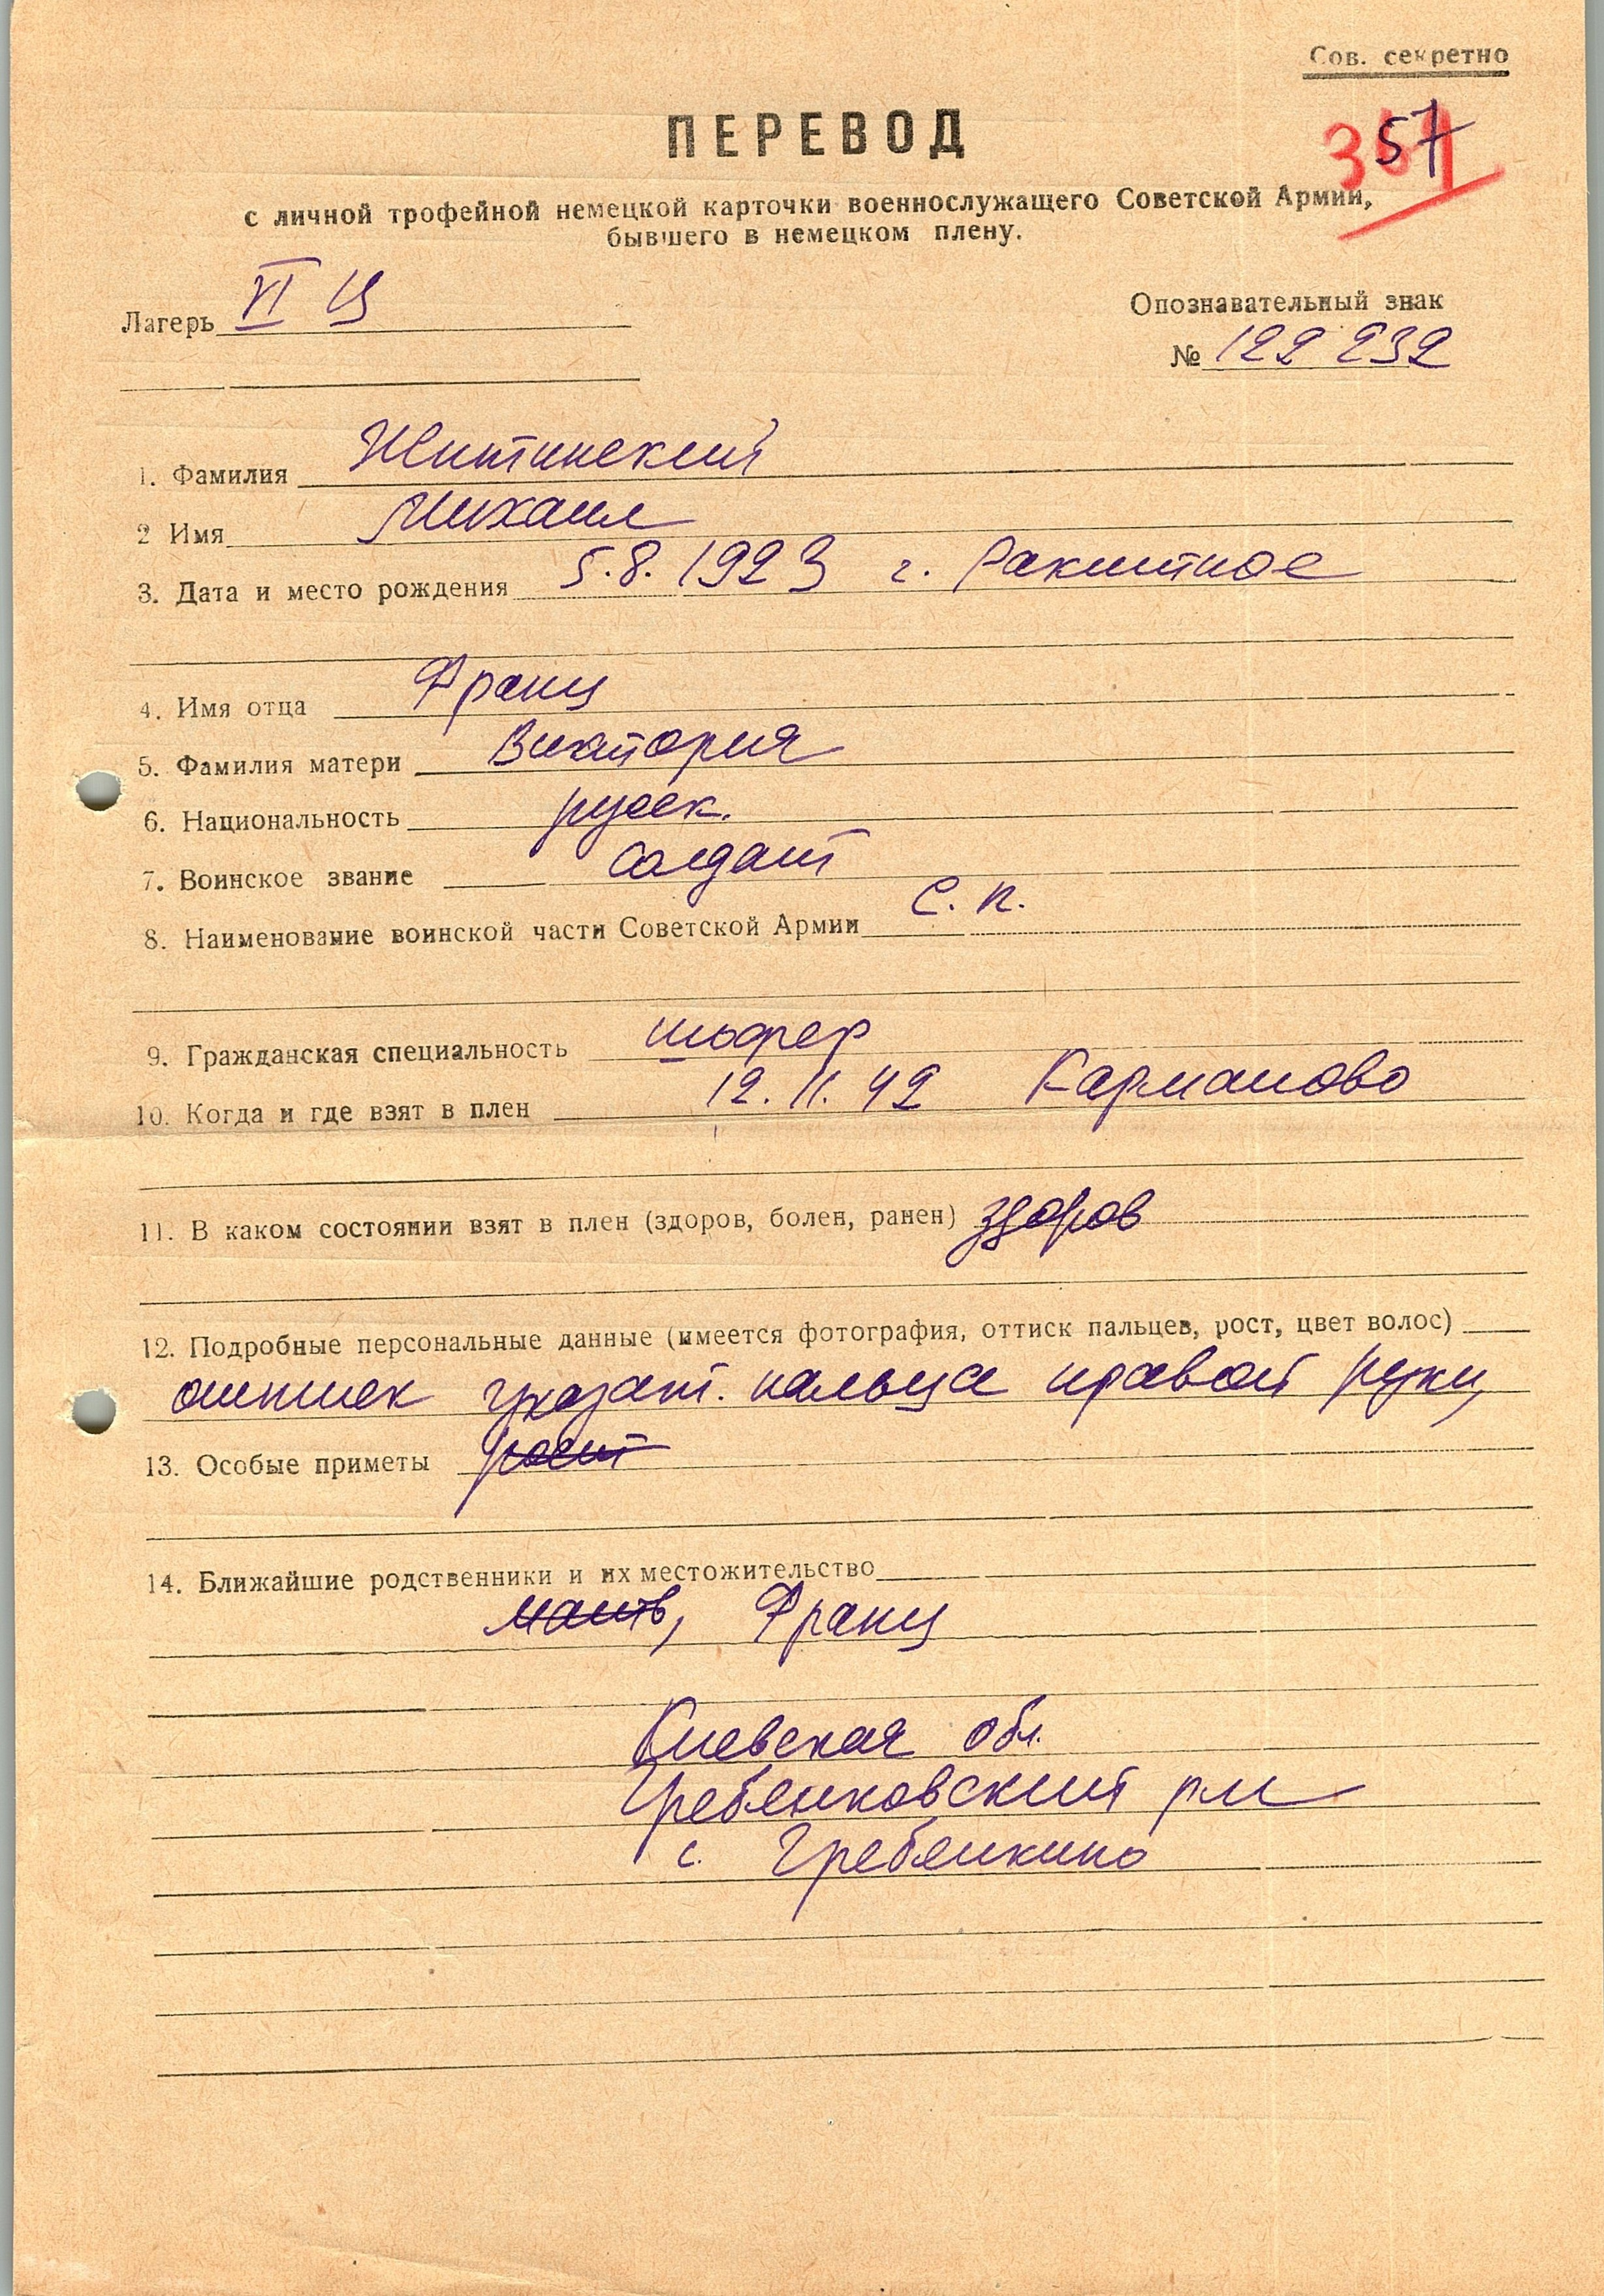 Сов. секретно
57
ПЕРЕВОД
с личной трофейной немецкой карточки военнослужащего Советской Армии,
бывшего в немецком плену.
Лагерь VI Ц
Опознавательный знак
№ 122 232
1. Фамилия Житинский
2 Имя Михаил
3. Дата и место рождения 5.8.1923 г. Ракитное
4. Имя отца Франц
5. Фамилия матери Виктория
6. Национальность русск.
7. Воинское звание солдат
8. Наименование воинской части Советской Армии с. п.
9. Гражданская специальность шофер
10. Когда и где взят в плен 12.11.42 Карманово
11. В каком состоянии взят в плен (здоров, болен, ранен) здоров
12. Подробные персональные данные (имеется фотография, оттиск пальцев, рост, цвет волос)
оттиск указат. пальца правой руки,
13. Особые приметы рост
14. Ближайшие родственники и их местожительство
мать, Франц
Киевская обл.
Гребенковский р-н
с. Гребенкино